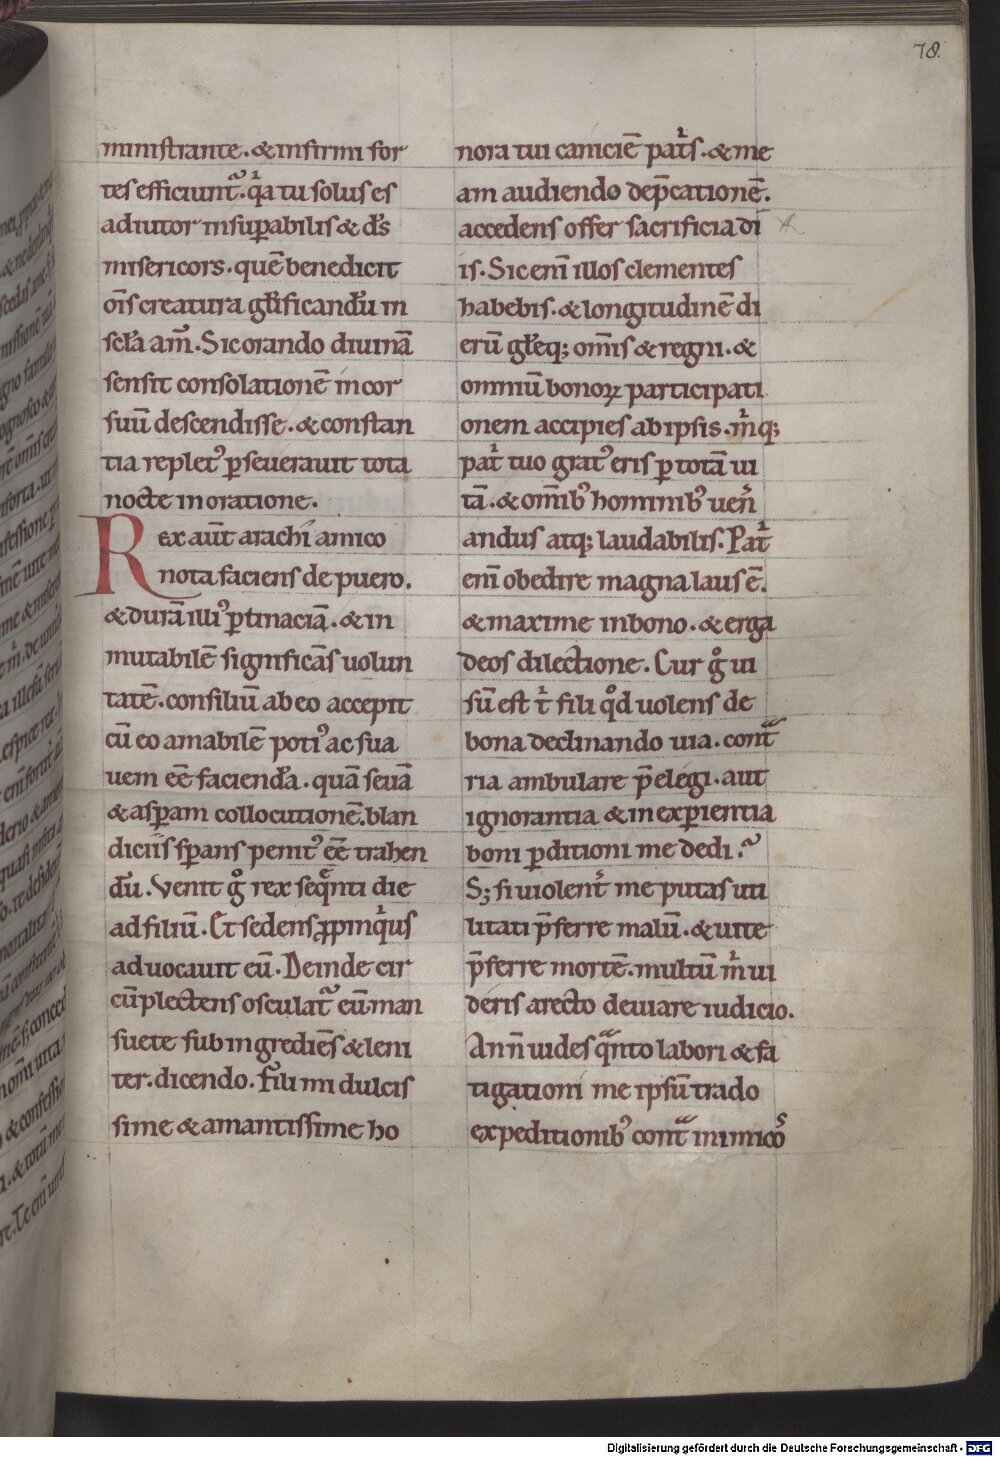 78.
ministrante. & infirmi for
tes efficiunt᷑. q̓a tu solus es
adiutor insup̱abilis & d̄s
misericors. quē benedicit
oīs creatura gl̄ificandū in
scl̄a am̄. Sic orando diuinā
sensit consolationē in cor
suū descendisse. & constan
tia replet᾽ p̱seuerauit tota
nocte in oratione.
Rex aūt arachi amico
nota faciens de puero.
& durā illi᾽ p̱tinaciā. & in
mutabilē significās uolun
tatē. consiliū ab eo accepit
cū eo amabilē poti᾽ ac sua
uem eē facienda. quā seuā
& asp̱am collocutionē. blan
diciis sp̱ans penit᾽ eē trahen
dū. Venit g̊ rex seq̄nti die
ad filiū. Et sedens ꝓpinq̓us
aduocauit eū. Deinde cir
cūplectens osculat᷑ eū man
suete subingrediēs & leni
ter. dicendo. Fili mi dulcis
sime & amantissime ho
nora tui caniciē pat̓s. & me
am audiendo dep̄cationē.
accedens offer sacrificia di
is. Sic enī illos clementes
habebis. & longitudinē di
erū gl̄eq; om̄is & regni. &
omniū bonoꝝ participati
onem accipies ab ipsis. m̓q;
pat̓ tuo grat᾽ eris p̱ totā ui
tā. & om̄ib᾽ hominib᾽ uen̄
andus atq; laudabilis. Pat̓
enī obedire magna laus ē.
& maxime in bono. & erga
deos dilectione. Cur g̊ ui
sū est t̓ fili qd̊ uolens de
bona declinando uia. contᷓ
ria ambulare p̄elegi. aut
ignorantia & inexp̱ientia
boni p̱ditioni me dedi.?
S; si uiolent̓ me putas uti
litati p̄ferre malū. & uite
p̄ferre mortē. multū m̓ ui
deris a recto deuiare iudicio.
An n̄ uides qᷓnto labori & fa
tigationi me ipsū trado
expeditionib᾽ contᷓ inimicos
Digitalisierung gefördert durch die Deutsche Forschungsgemeinschaft - DFG